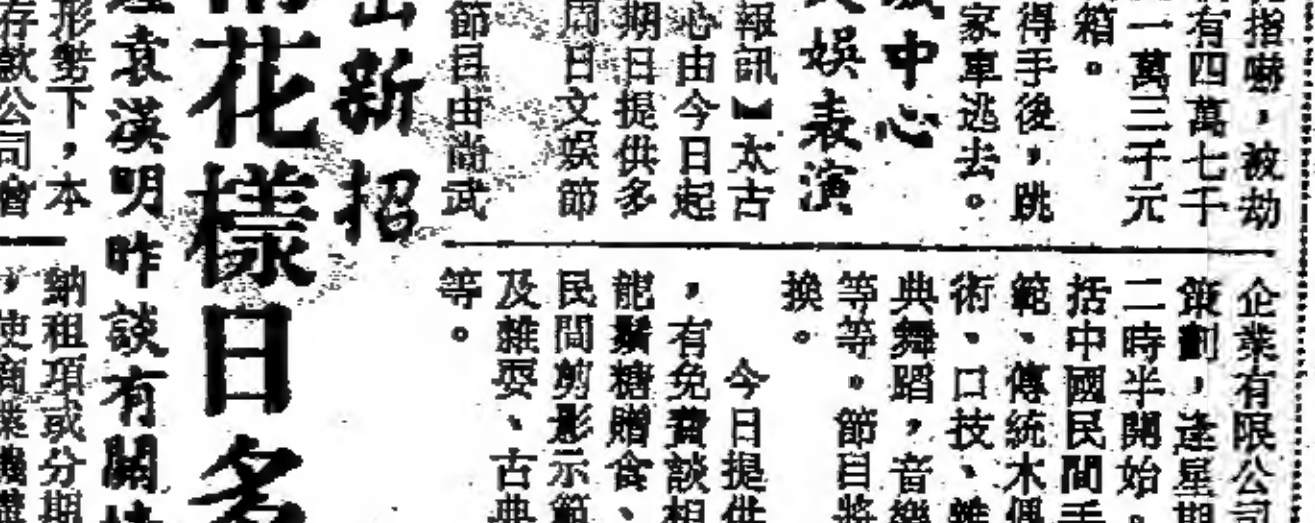 指嚇，被劫
有四萬七千
一萬三千元
箱。
得手後，跳
家車逃去。
中心
娛表演
報訊】太古
心由今日起
期日提供多
周日文娛節
節目由尚武
企業有限公司
策劃，逢星期
二時半開始。
括中國民間手
範、傳統木偶
術、口技、雜
典舞蹈，音樂
等等。節目將
換。
今日提供
，有免費談相
龍鬚糖贈食、
民間剪影示範
及雜耍、古典
等。
出新招
花樣日多
袁漢明昨談有關
形勢下，本
存款公司會
納租項或分期
，使商業機